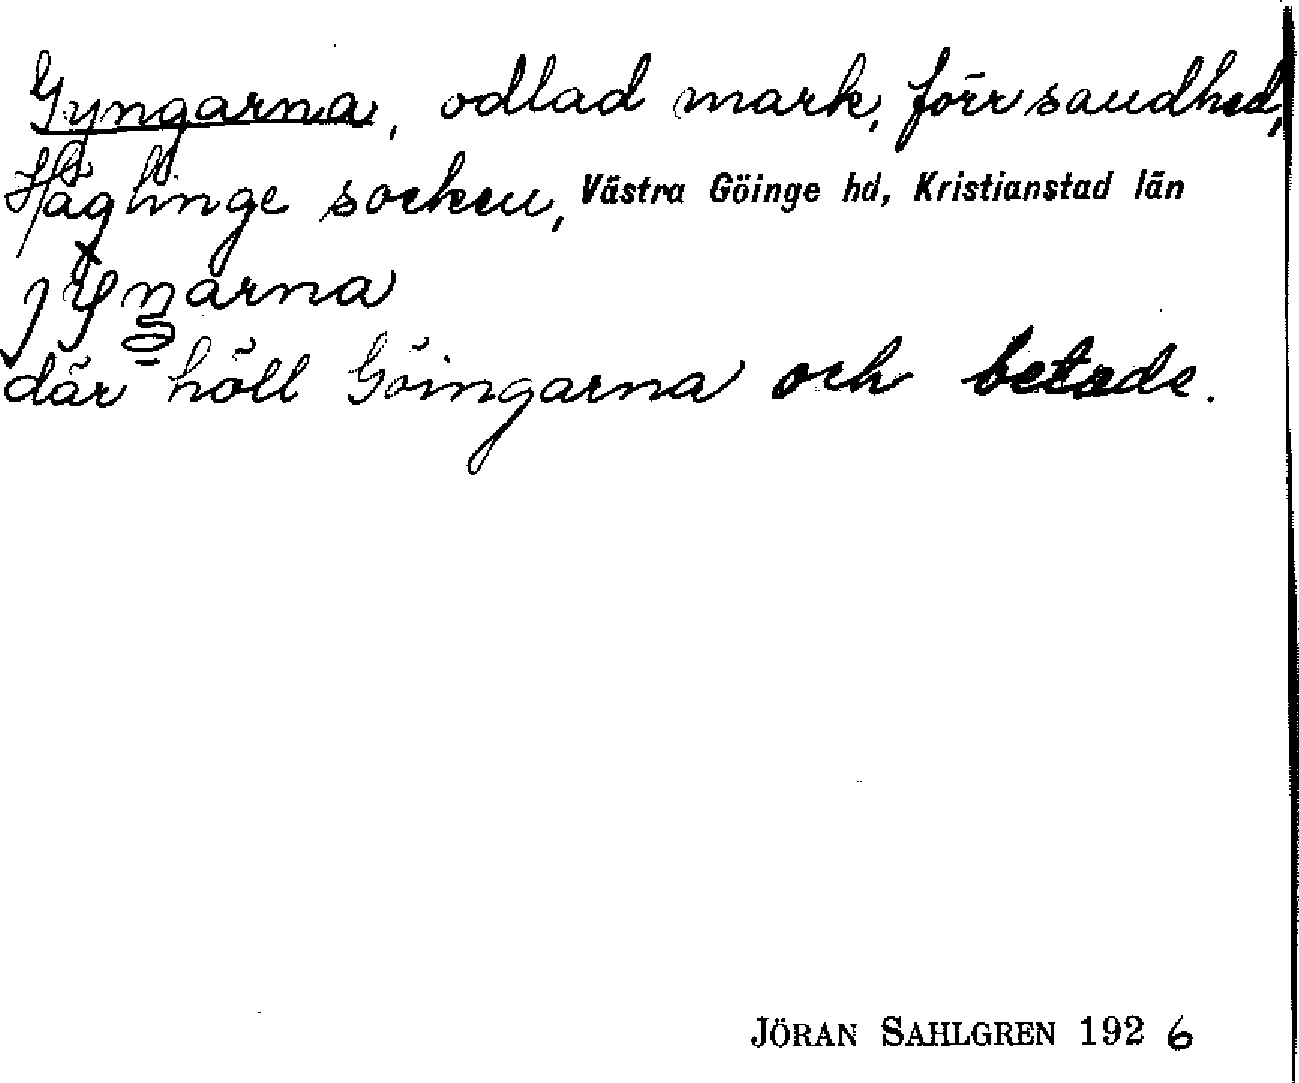 Gyngarna, odlad mark, förr sandhed,
Häglinge socken, Västra Göinge hd, Kristianstad län
där höll Göingarna och betade.
JÖRAN SAHLGREN 1926